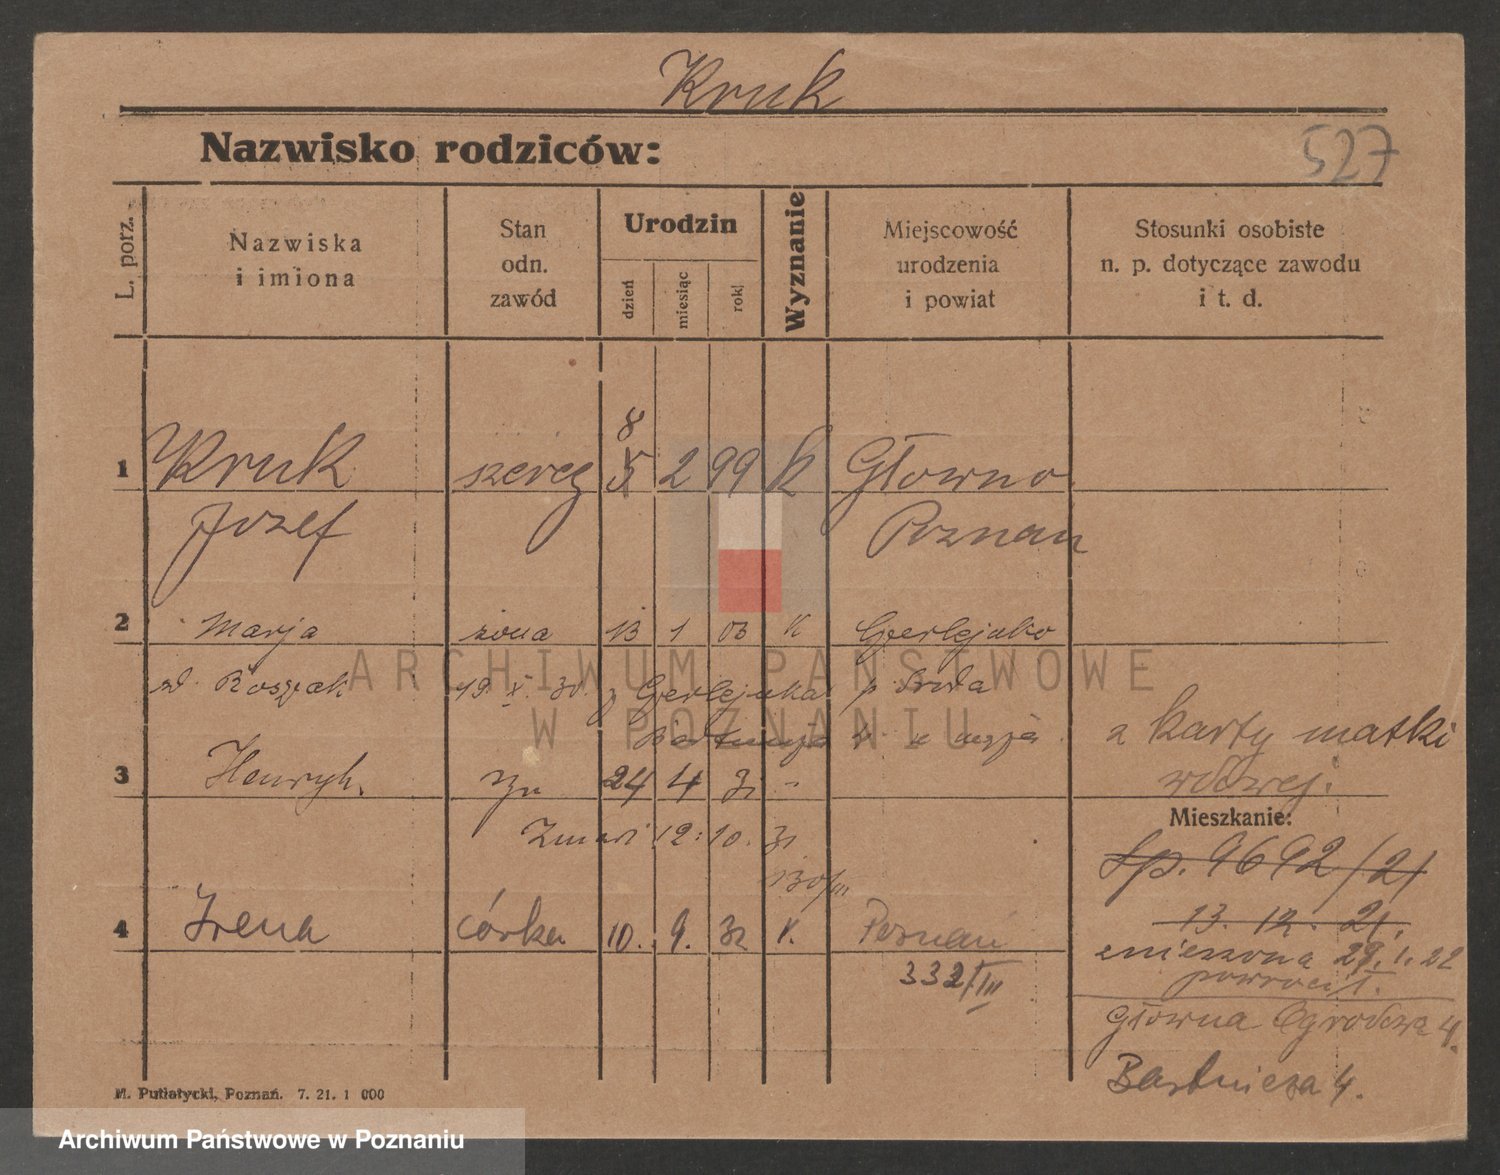 Kruk
Nazwisko rodziców:
527
L. porz.
Nazwiska i imiona
Stan odn. zawód
Urodzin
dzień
miesiąc
rok
Wyznanie
Miejscowość urodzenia i powiat
Stosunki osobiste n. p. dotyczące zawodu i t. d.
8
1 Kruk szereg 5 2 99 k Głowno
Jozef Poznan
2 Marja żona 13 1 03 K
19. X. 30. z p.
z karty matki
3 Henryk. syn 24 4 31 -
wdowej.
Mieszkanie:
Zmarł 12. 10. 31
130/III
Sp. 9692/21
4 Irena córka 10. 9. 32 K. Poznań
13. 12. 21.
332/III
zniesiona 28. 1. 22
powrócił.
Główna Ogrodowa 4.
Bartnicza 4.
M. Putiatycki, Poznań. 7. 21. 1 000
ARCHIWUM PAŃSTWOWE
W POZNANIU
Archiwum Państwowe w Poznaniu